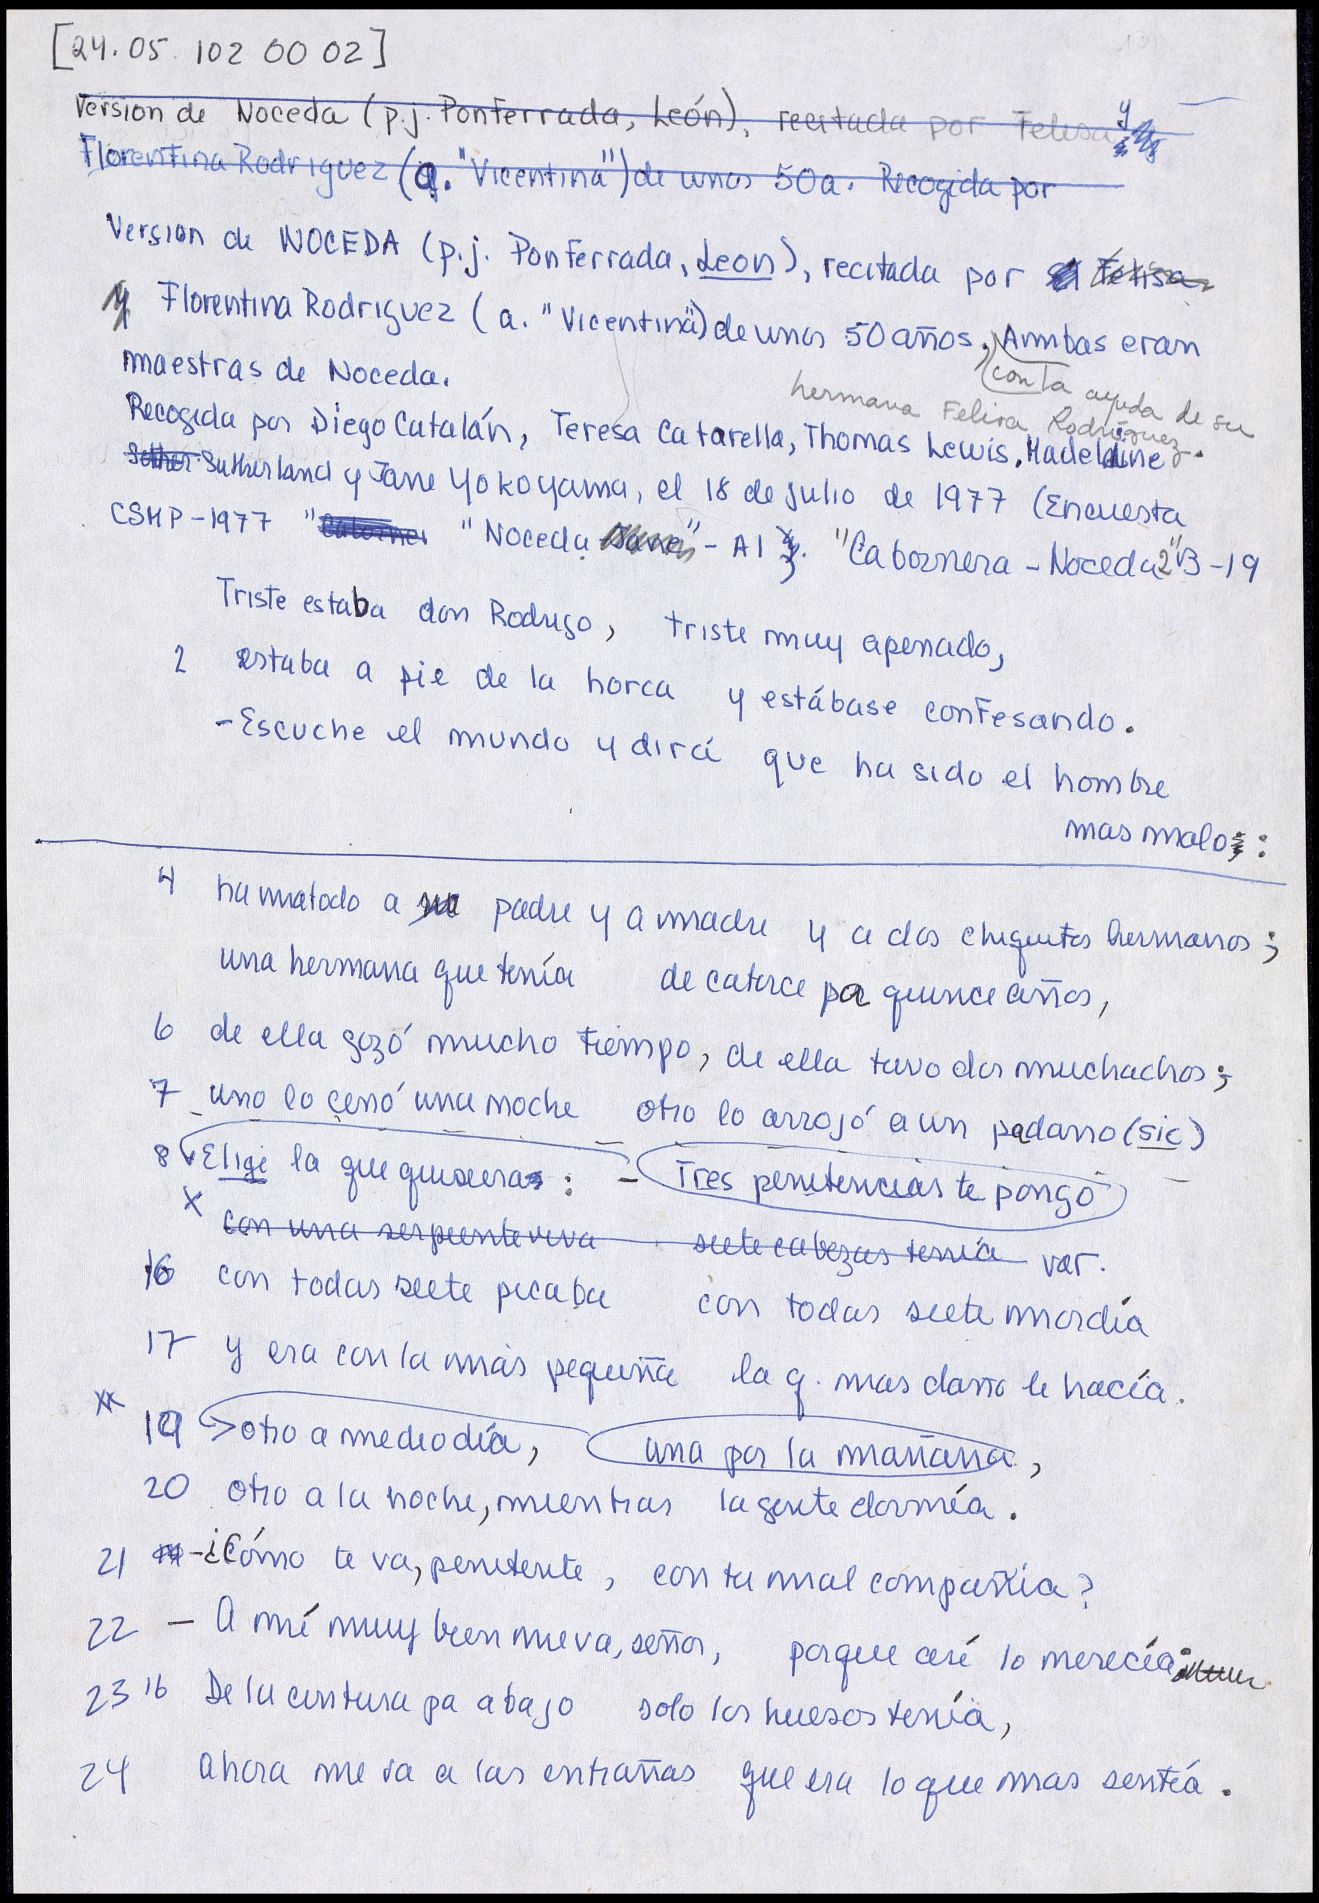 [24.05 102 00 02]
Version de Noceda (p.j. Ponferrada, León), recitada por Felisa y
Florentina Rodriguez (a. "Vicentina") de unos 50a. Recogida por
Version de NOCEDA (p.j. Ponferrada, Leon), recitada por Felisa
y Florentina Rodriguez (a. "Vicentina") de unos 50 años. Ambas eran
maestras de Noceda.
con la ayuda de su
hermana Felisa Rodríguez.
Recogida por Diego Catalán, Teresa Catarella, Thomas Lewis, Madeleine
Suther Sutherland y Jane Yokoyama, el 18 de julio de 1977 (Encuesta
CSMP-1977 "Caborne "Noceda Jane" - A1 y. "Cabornera - Noceda 2" B-19
Triste estaba don Rodrigo, triste muy apenado,
2 estaba a pie de la horca y estábase confesando.
- Escuche el mundo y dirá que ha sido el hombre
mas malo :
4 ha matado a su padre y a madre y a dos chiquitos hermanos;
una hermana que tenía de catorce pa quince años,
6 de ella gozó mucho tiempo, de ella tuvo dos muchachos;
7 uno lo cenó una noche otro lo arrojó a un padano (sic)
8 Elige la que quisieras: - Tres penitencias te pongo
x con una serpiente viva siete cabezas tenía var.
16 con todas siete picaba con todas siete mordía
17 y era con la más pequeña la q. mas daño le hacía.
xx
19 otro a mediodía, una por la mañana,
20 otro a la noche, mientras la gente dormía.
21 -¿Cómo te va, penitente, con tu mal compañía?
22 - A mí muy bien me va, señor, porque así lo merecía:
23 16 De la cintura pa abajo solo los huesos tenía,
24 ahora me va a las entrañas que era lo que mas sentía.